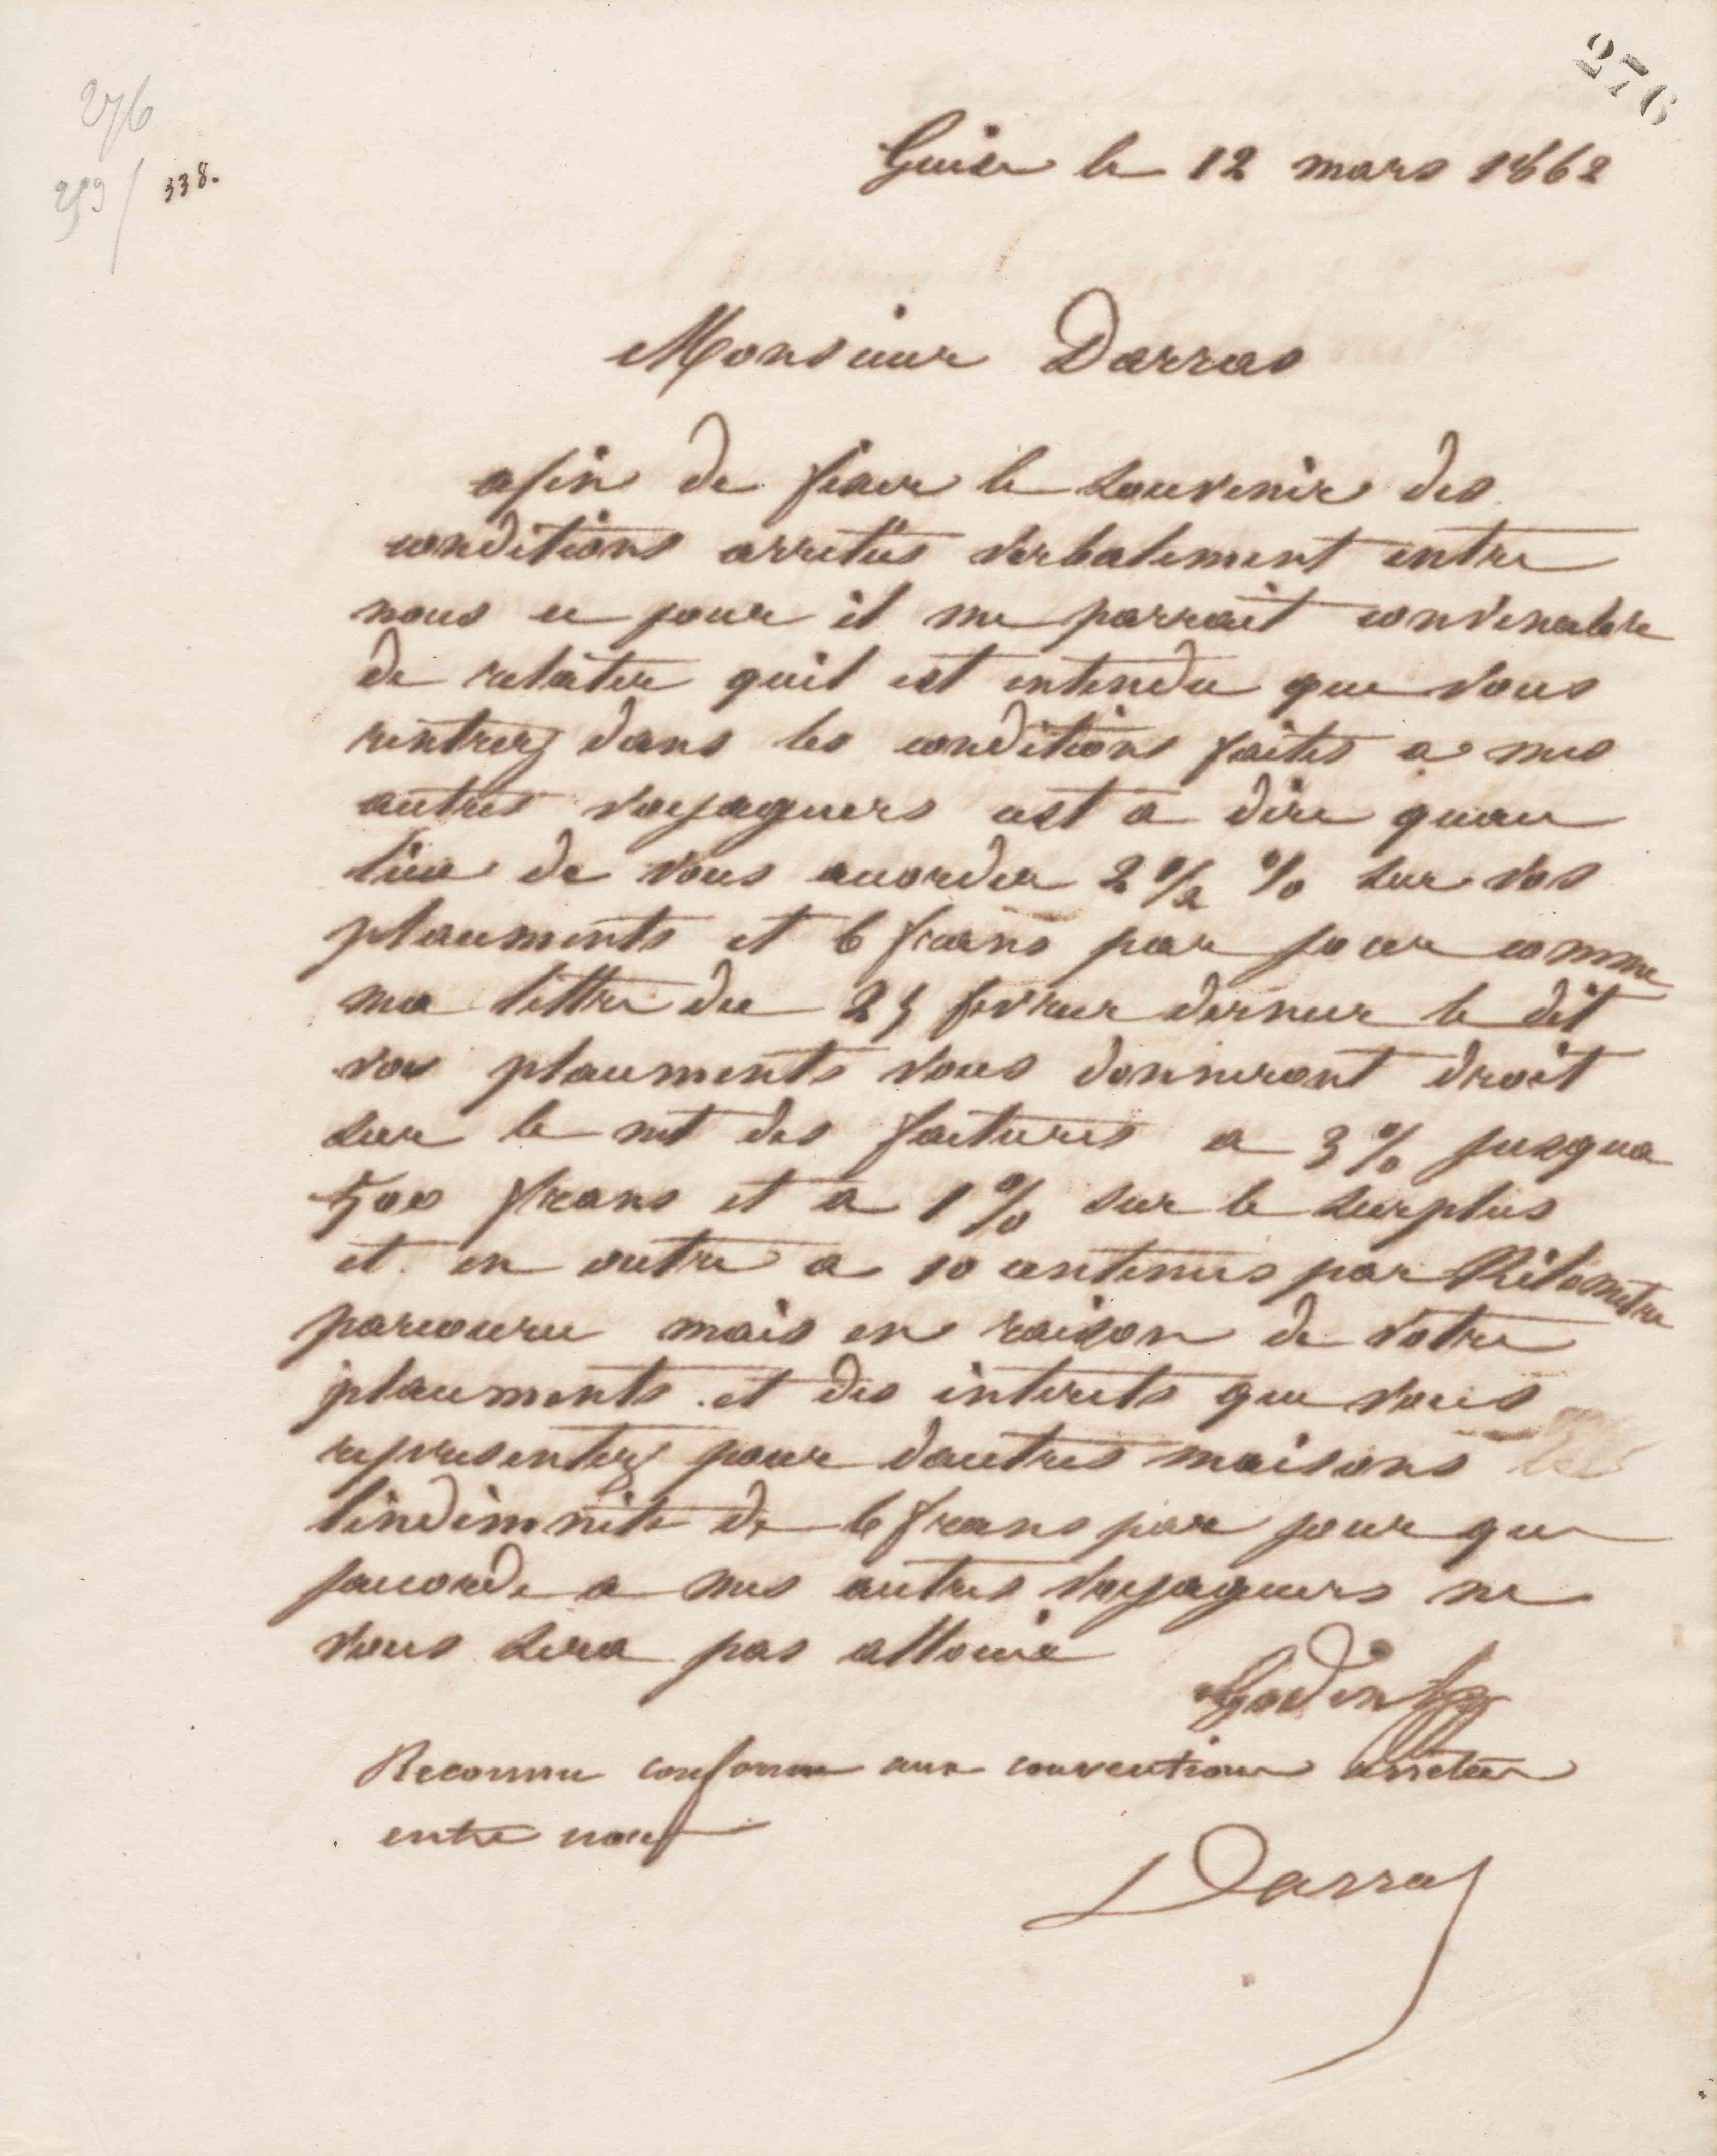 276
276
259 / 338.
Guise le 12 mars 1862
Monsieur Darras
afin de fixer le souvenir des
conditions arretées verbalement entre
nous ce jour il me parrait convenable
de relater quil est entendu que vous
rentrez dans les conditions faites a mes
autres voyageurs cest a dire quau
lieu de vous accorder 2 % sur vos
placements et 6 francs par jour comme
ma lettre du fevrier dernier le dit
vos placements vous donneront droit
sur le net des factures a 3 % jusqua
500 francs et a 1 % sur le surplus
et en outre a 10 centimes par Kilometre
parcouru mais en raison de votre
placements et des interets que vous
representez pour dautres maisons
lindemnite de 6 francs par jour que
jaccorde a mes autres voyageurs ne
vous sera pas allouée
Godin
Reconnu conforme aux conventions arretées
entre nous
Darras